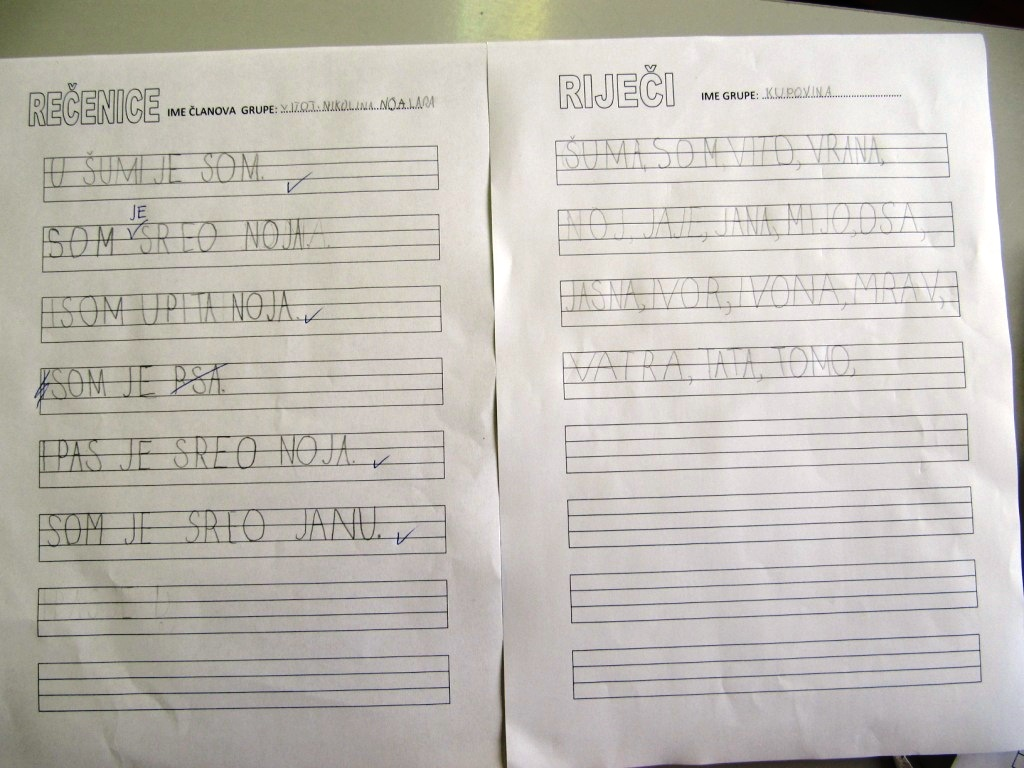 REČENICE IME ČLANOVA GRUPE: NIKOLINA NOA LARA
U ŠUMI JE SOM.
JE
SOM SREO NOJA.
I SOM UPITA NOJA.
SOM JE PSA.
I PAS JE SREO NOJA.
SOM JE SREO JANU.
RIJEČI IME GRUPE: KUPOVINA
ŠUMA, SOM, VITO, VRANA,
NOJ, JAJE, JANA, MIJO, OSA,
JASNA, IVOR, IVONA, MRAV,
VATRA, TATA, TOMO,